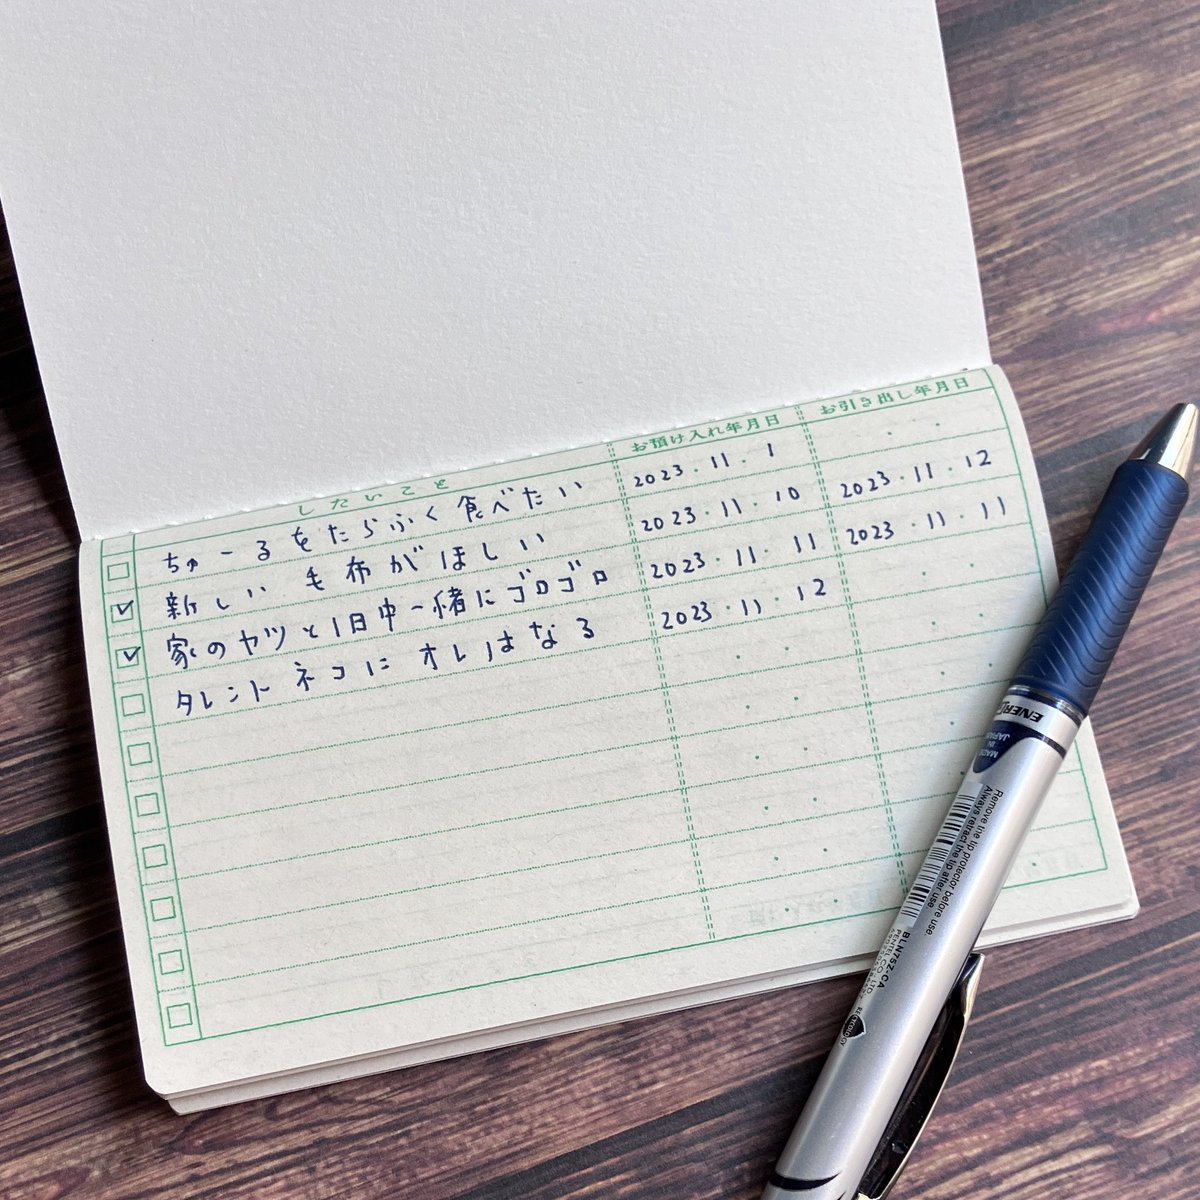 したいこと お預け入れ年月日 お引き出し年月日
ちゅーるをたらふく食べたい 2023.11.1
新しい毛布がほしい 2023.11.10 2023.11.12
家のヤツと1日中一緒にゴロゴロ 2023.11.11 2023.11.11
タレントネコにオレはなる 2023.11.12
MADE
IN
JAPAN
Remove the tip protector before use
Always retract the tip after use
BLN75Z-CA
PENTEL CO., LTD.
RECYCOLOGY